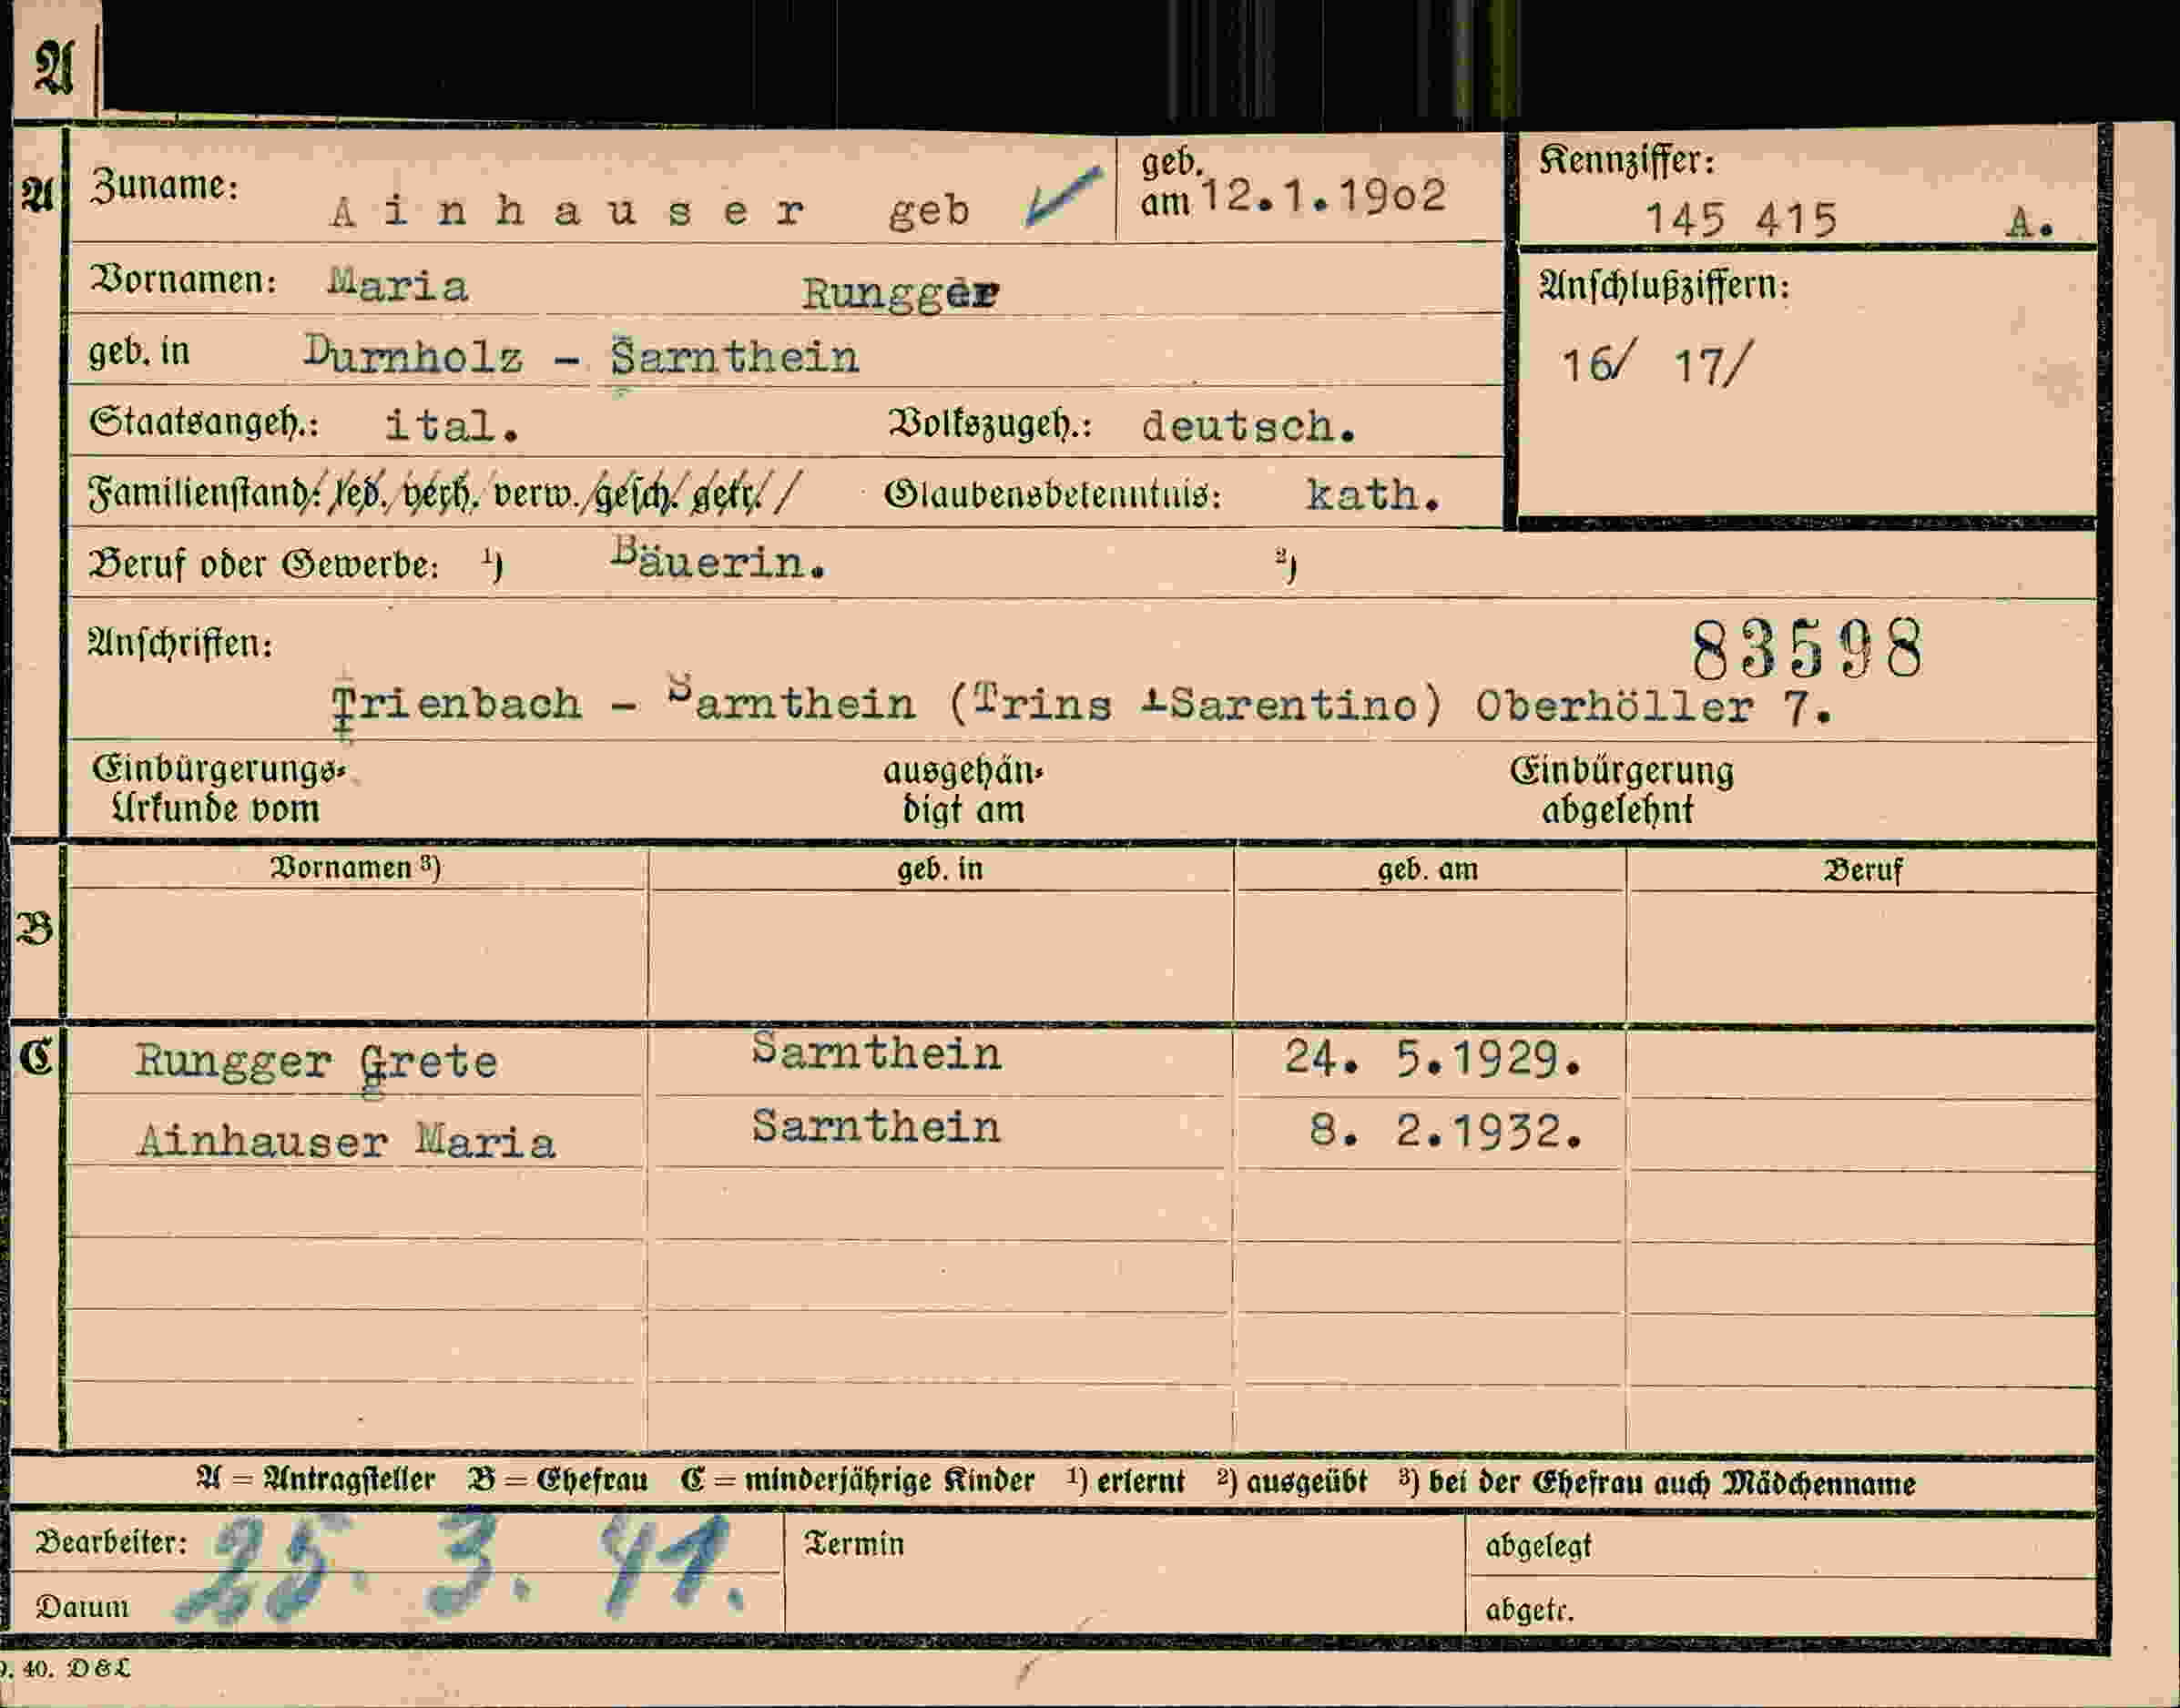 A
A
Zuname: Ainhauser geb
geb.
am 12.1.1902
Kennziffer:
145 415 A.
Vornamen: Maria Rungger
Anschlußziffern:
16/ 17/
geb. in Durnholz - Sarnthein
Staatsangeh.: ital. Volkszugeh.: deutsch.
Familienstand: led. verh. verw. gesch. getr. / Glaubensbekenntnis: kath.
Beruf oder Gewerbe: ¹) Bäuerin. ²)
Anschriften:
83598
Trienbach - Sarnthein (Trins -Sarentino) Oberhöller 7.
Einbürgerungs-
Urkunde vom
ausgehän-
digt am
Einbürgerung
abgelehnt
Vornamen ³) geb. in geb. am Beruf
B
C Rungger Grete Sarnthein 24. 5.1929.
Ainhauser Maria Sarnthein 8. 2.1932.
A = Antragsteller B = Ehefrau C = minderjährige Kinder ¹) erlernt ²) ausgeübt ³) bei der Ehefrau auch Mädchenname
Bearbeiter: 25. 3. 41.
Datum
Termin
abgelegt
abgetr.
. 40. D&L